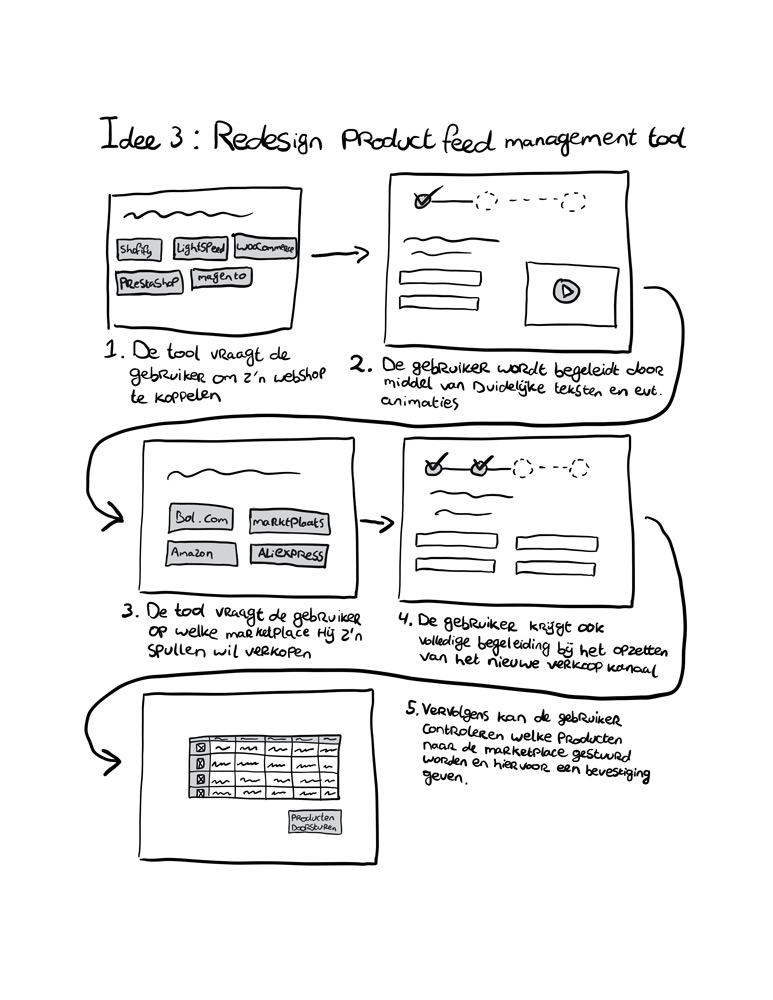 Idee 3: Redesign product feed management tool
Shofify
LightSpeed
WooCommerce
PRestashop
magento
1. De tool vraagt de
gebruiker om z'n webshop
te koppelen
2. De gebruiker wordt begeleidt door
middel van Duidelijke teksten en evt.
animaties
Bol.com
marktplaats
Amazon
ALiexpress
3. De tool vraagt de gebruiker
op welke marketplace Hij z'n
spullen wil verkopen
4. De gebruiker krijgt ook
volledige begeleiding bij het opzetten
van het nieuwe verkoop kanaal
5. Vervolgens kan de gebruiker
controleren welke producten
naar de marketplace gestuurd
worden en hiervoor een bevestiging
geven.
PRoducten
DooRsturen